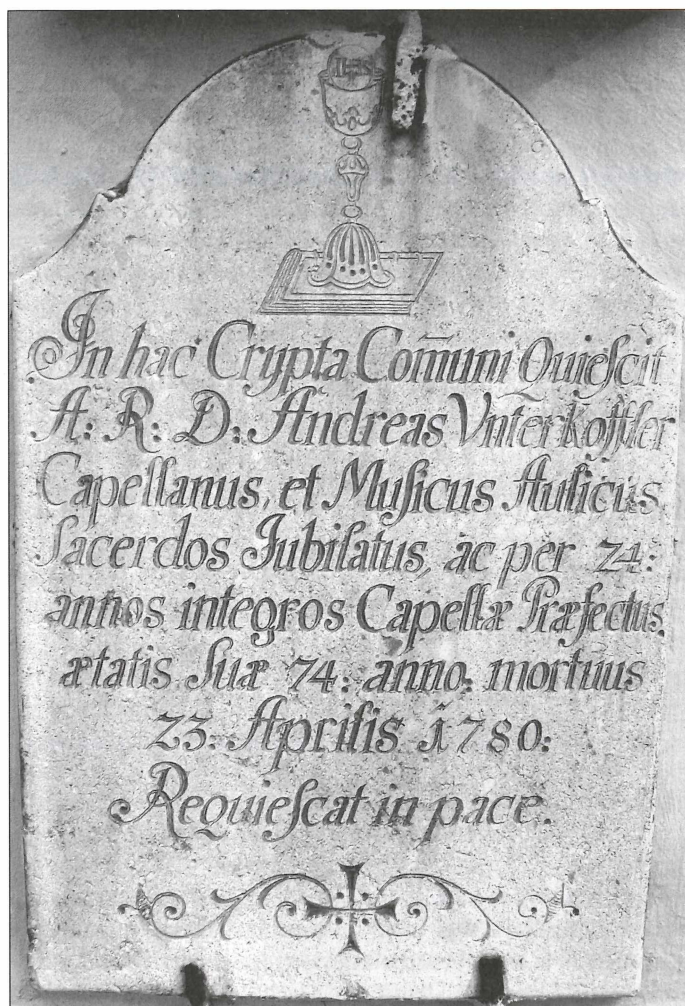 IHS
In hac Crypta Com̄uni Quieſcit
A: R: D: Andreas Vnterkoffler
Capellanus, et Muſicus Aulicus
Sacerdos Jubilatus, ac per 24:
annos integros Capellæ Præfectus,
ætatis Suæ 74: anno: mortuus
23. Aprilis 1780:
Requieſcat in pace.